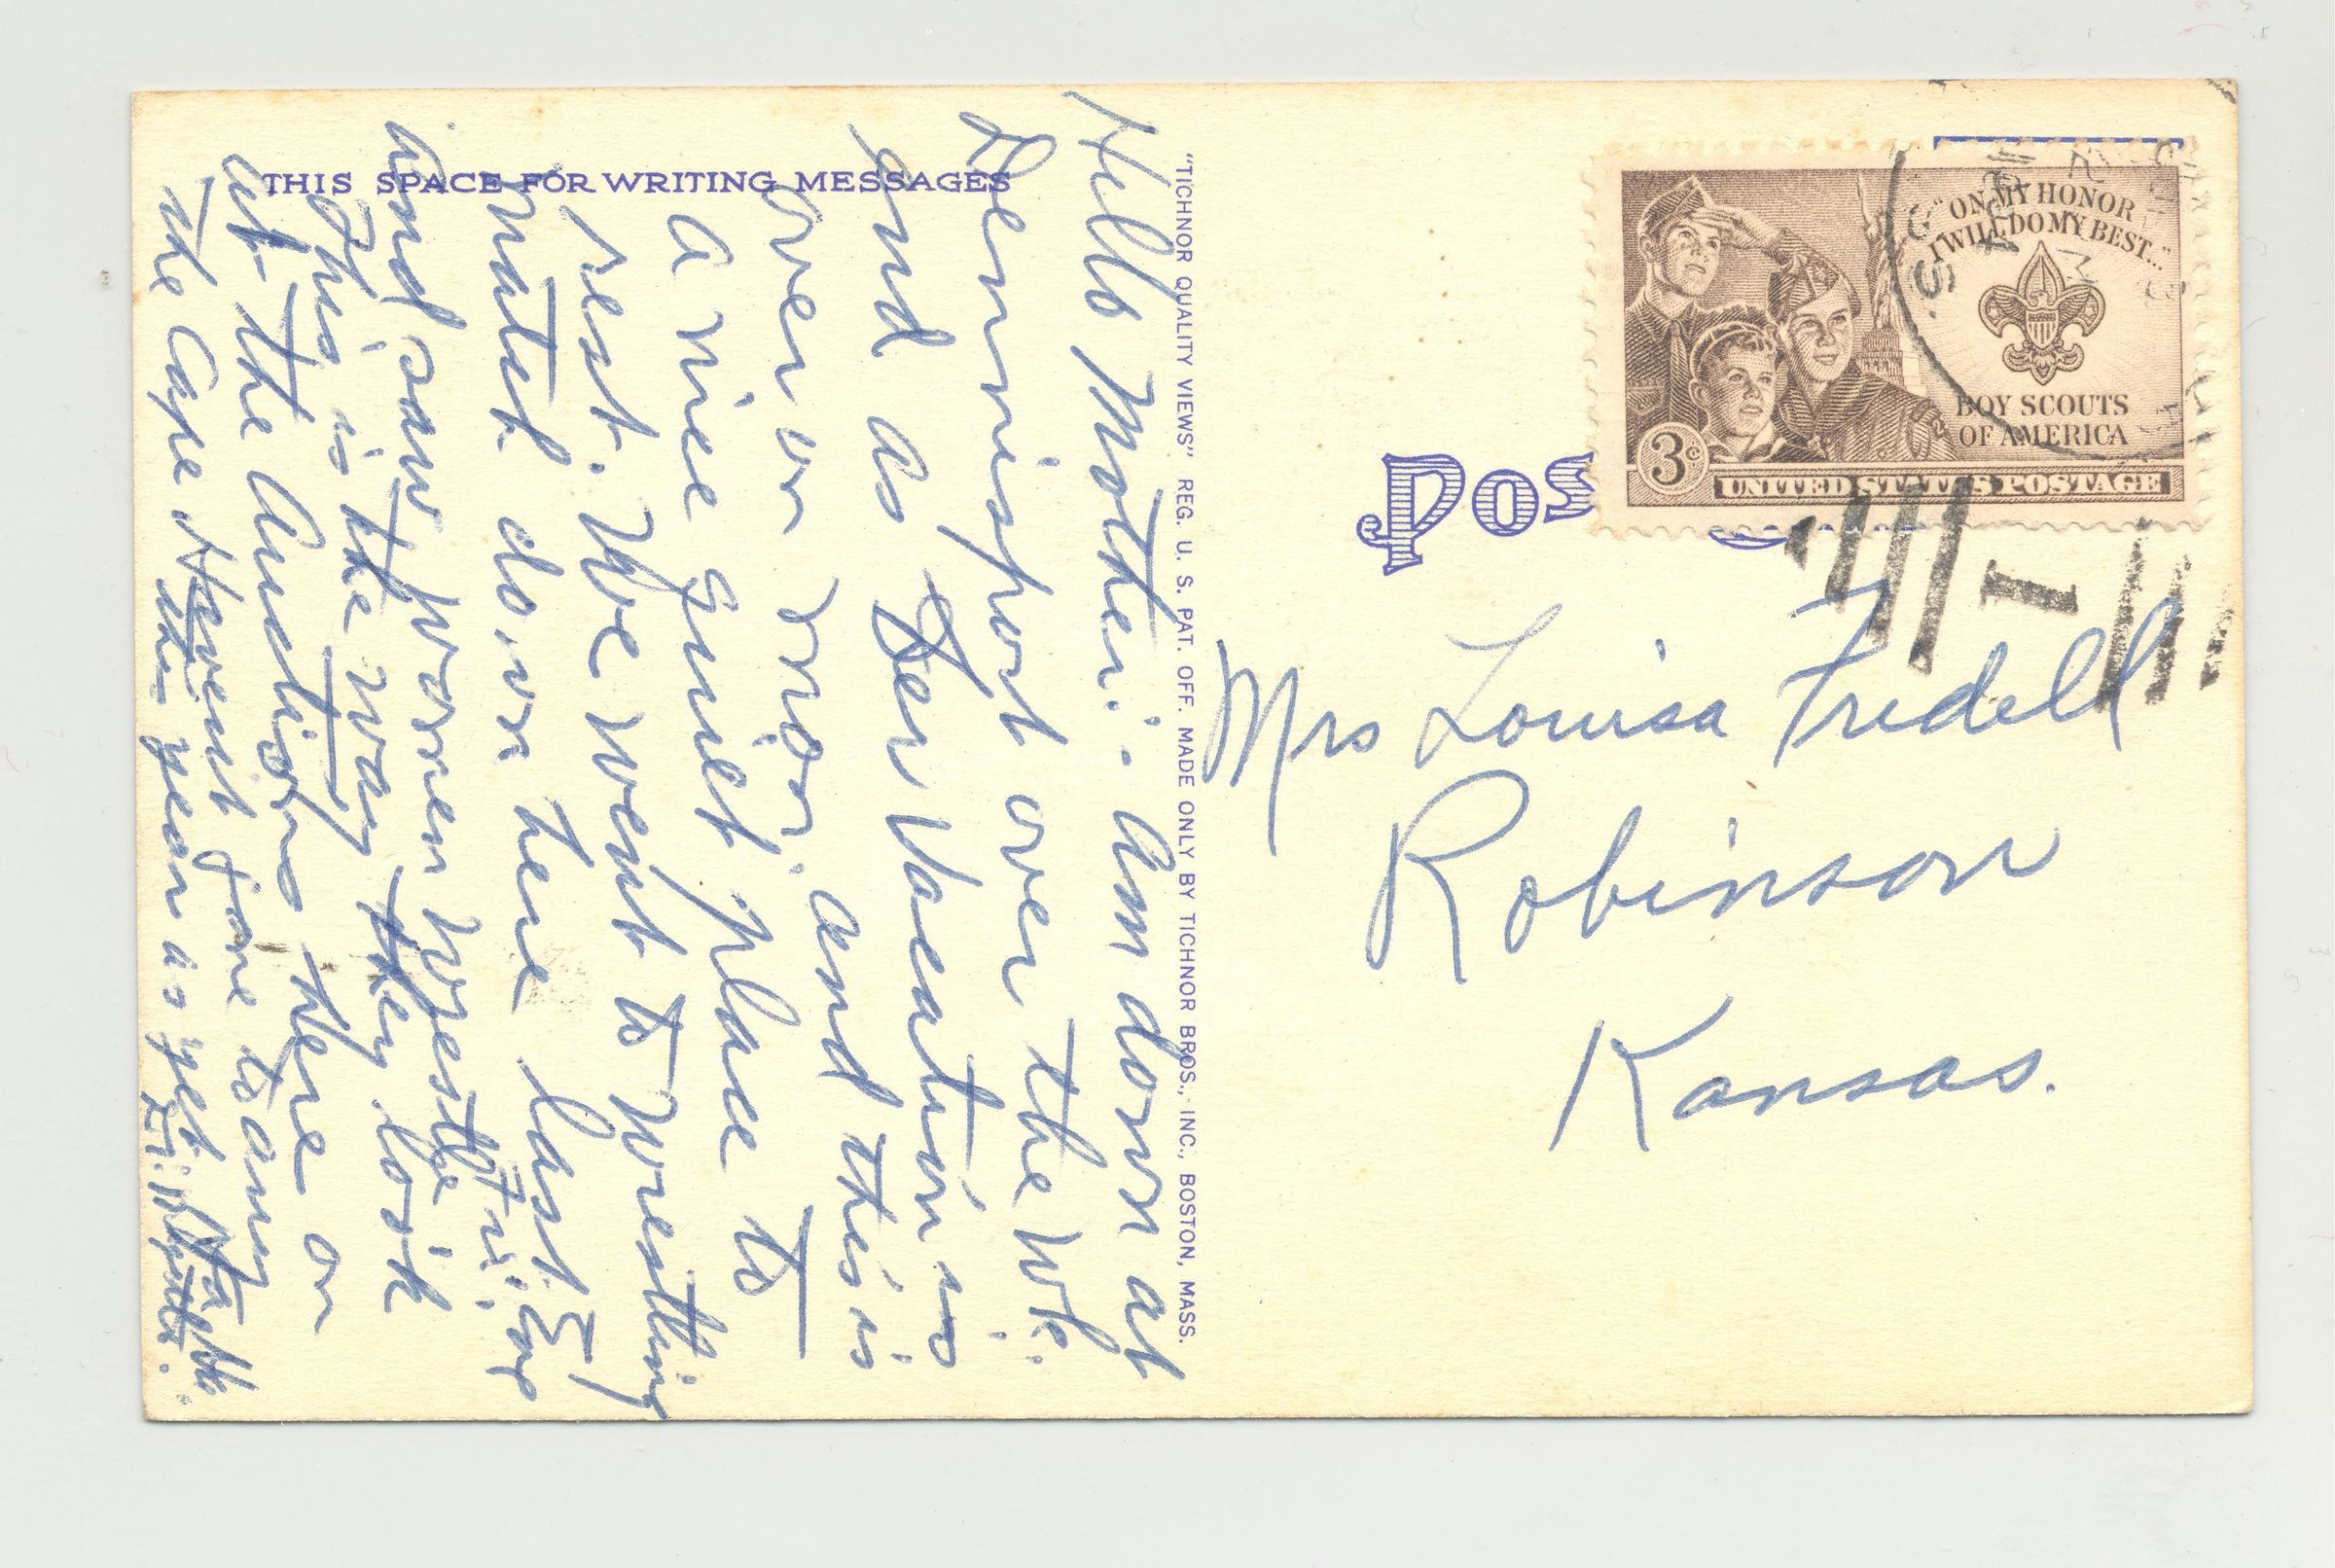 THIS SPACE FOR WRITING MESSAGES
Hello Mother:- Am down at
Dennisport over the wk.
end as Den Vacation is
over on mon. and this is
a nice quiet place to
rest. We went to wrestling
match down here last
and saw women wrestle
This is the way they look
at the Auctions there on
the Cape Havent gone to any
this year as yet
"TICHNOR QUALITY VIEWS" REG. U. S. PAT. OFF. MADE ONLY BY TICHNOR BROS., INC., BOSTON, MASS.
POS
"ON MY HONOR
I WILL DO MY BEST..."
BOY SCOUTS
OF AMERICA
3¢
UNITED STATES POSTAGE
1
Mrs Louisa Fridell
Robinson
Kansas.